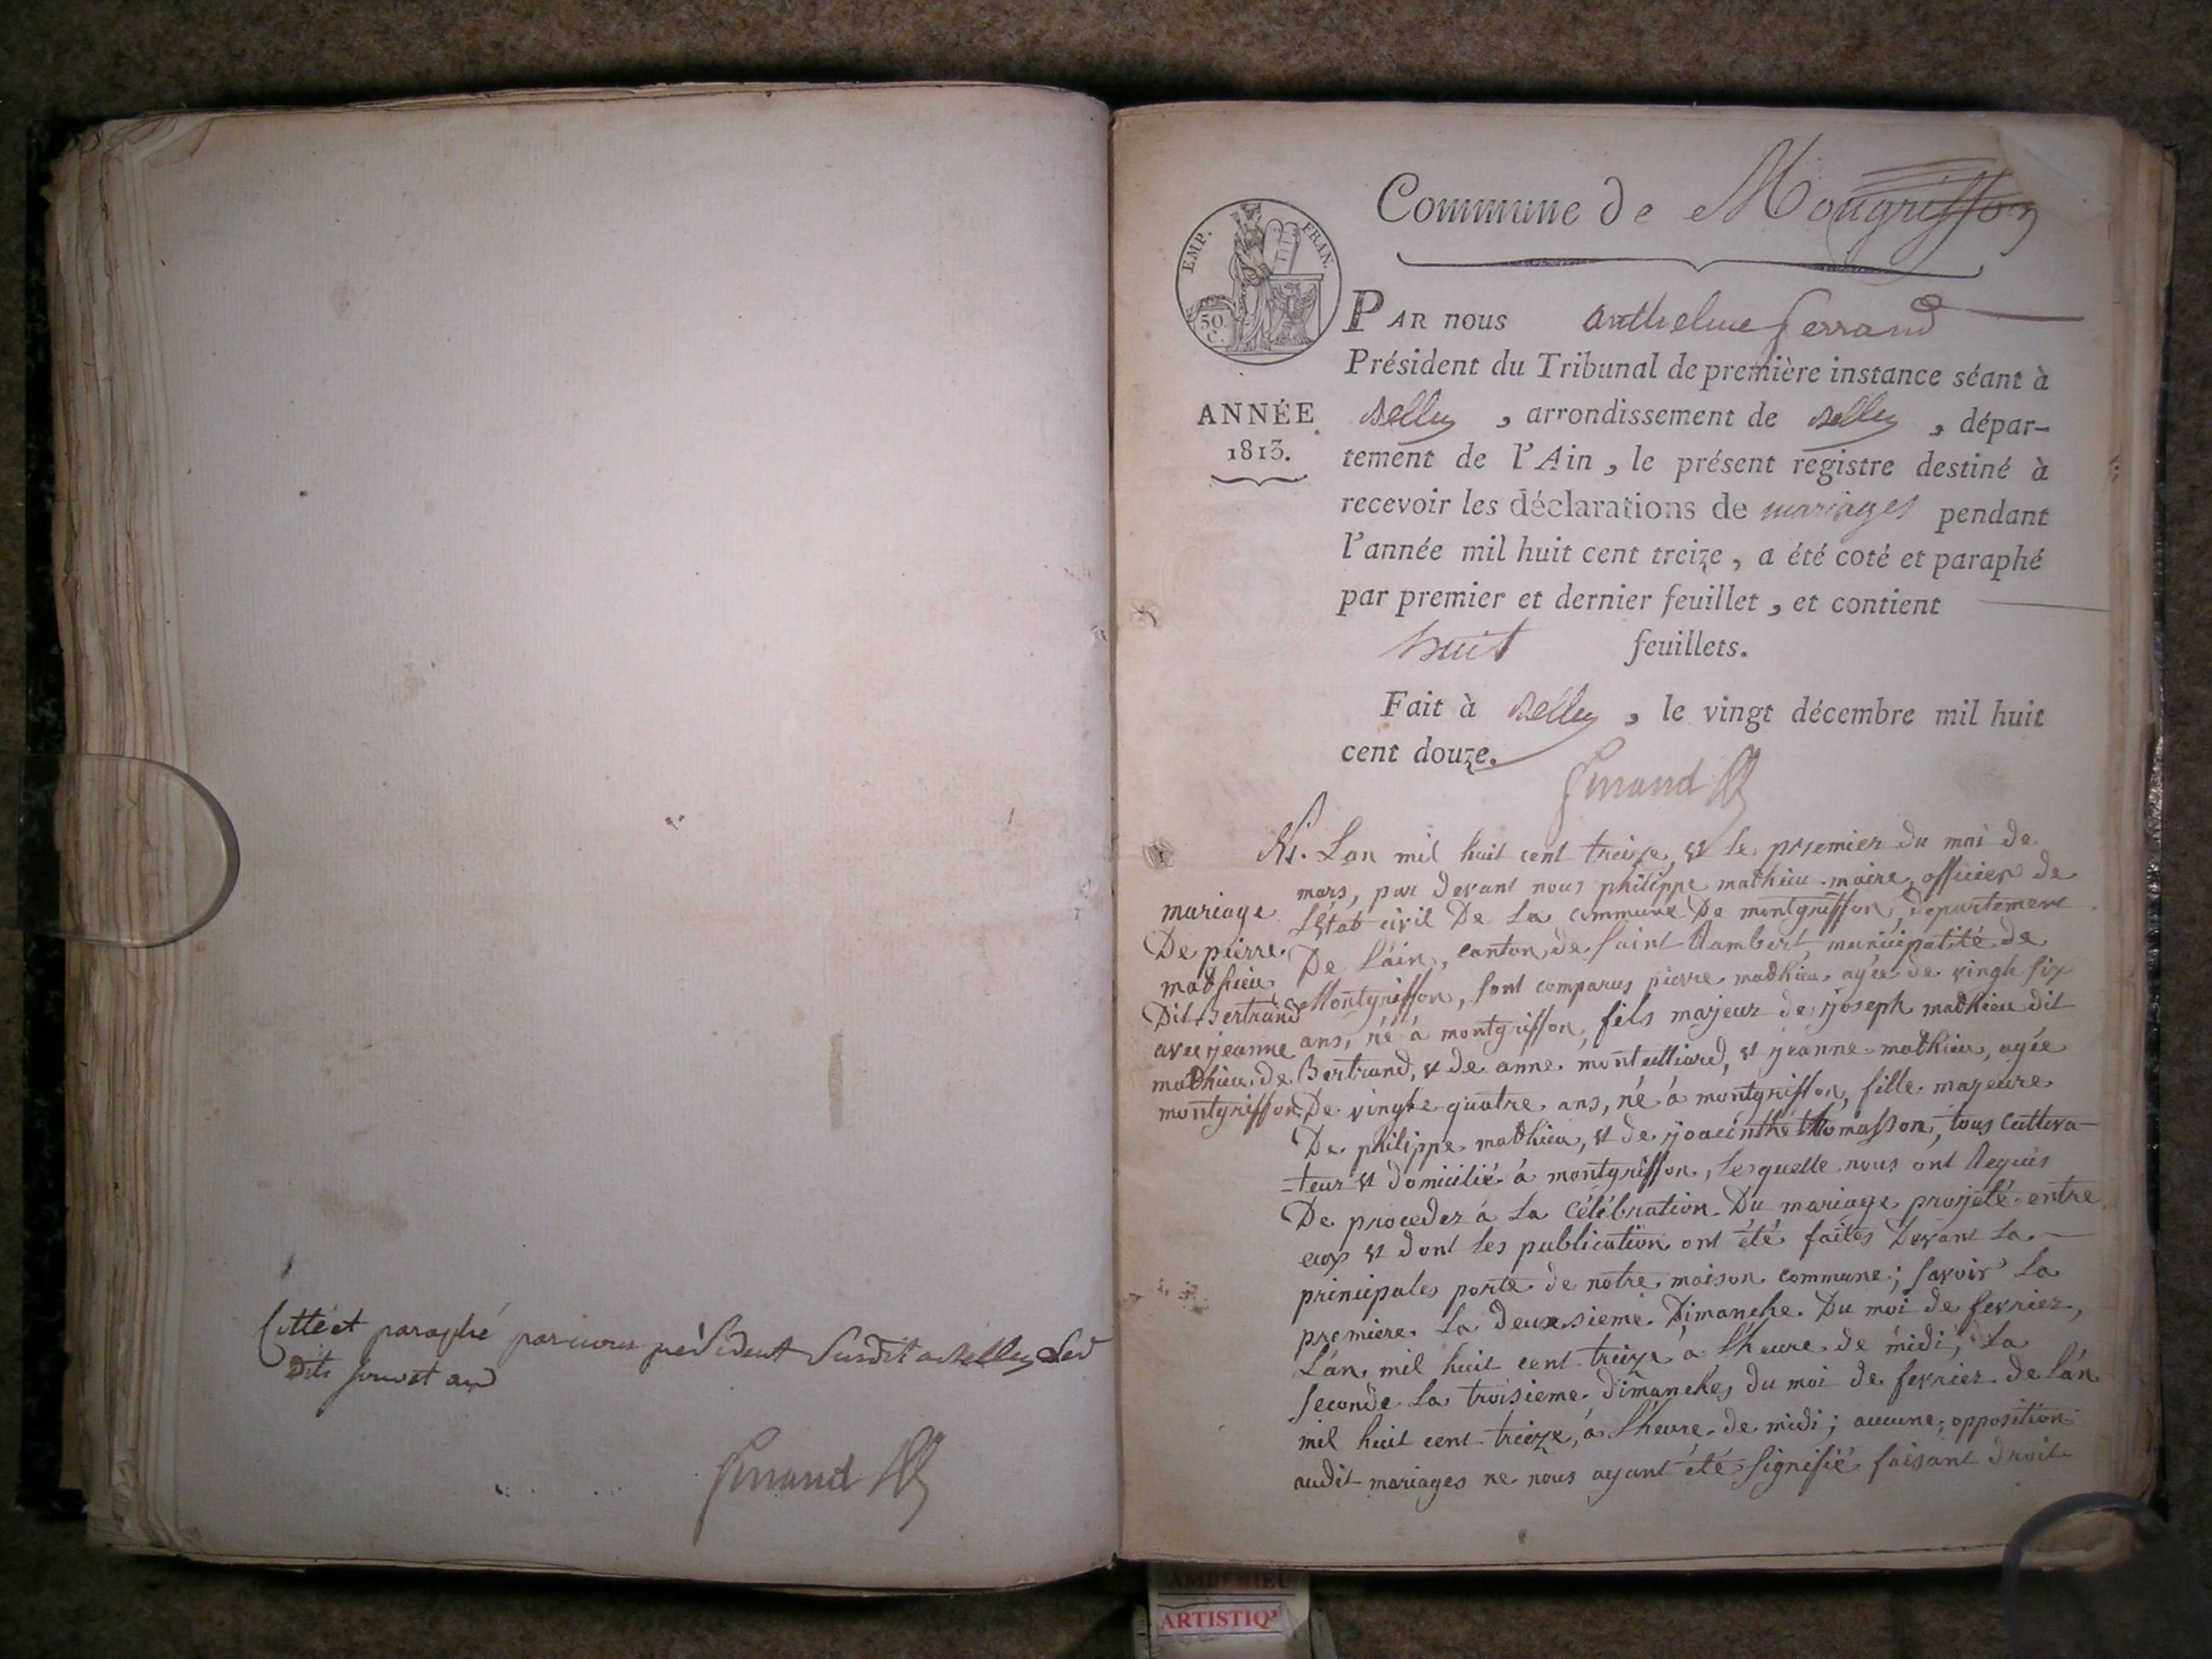 Cotté et paraphé par nous président susdit a Belley led
dits jour et an
Ferrand
Commune de Mongriffon
EMP. FRAN.
50 C.
ANNÉE
1813.
PAR nous anthelme ferrand
Président du Tribunal de première instance séant à
Belley , arrondissement de Belley , dépar-
tement de l'Ain , le présent registre destiné à
recevoir les déclarations de mariages pendant
l'année mil huit cent treize , a été coté et paraphé
par premier et dernier feuillet , et contient
huit feuillets.
Fait à Belley , le vingt décembre mil huit
cent douze.
Ferrand
mariage
De pierre
mathieu
Dit Bertrand
avec jeanne
mathieu de
montgriffon
Lan mil huit cent treize, et le premier du moi de
mars, par devant nous philippe mathieu maire, officier de
Létat civil De La commune De montgriffon, departement
De Láin, canton de saint Rambert, municipalité de
Montgriffon, sont comparus pierre mathieu agée de vingt six
ans, né à montgriffon, fils majeur de joseph mathieu dit
Bertrand, & de anne montulliard, et jeanne mathieu, agée
De vingte quatre ans, né à montgriffon, fille majeure
De philippe mathieu, et de joacinthe thomasson, tous cultiva-
-teur et domicilié à montgriffon, lesquelle nous ont Requis
De proceder à La Célébration Du mariage projeté entre
eux et dont les publication ont été faites Devant La
principales porte de notre maison commune; savoir La
premiere La deuxsieme Dimanche Du moi de fevrier,
Lán mil huit cent treize a Lheure de midi, La
seconde La troisieme dimanches du moi de fevrier de Lán
mil huit cent treize, a Lheure de midi; aucune opposition
audit mariages ne nous ayant été signifié faisant droit
AMBERIEU
ARTISTIQ